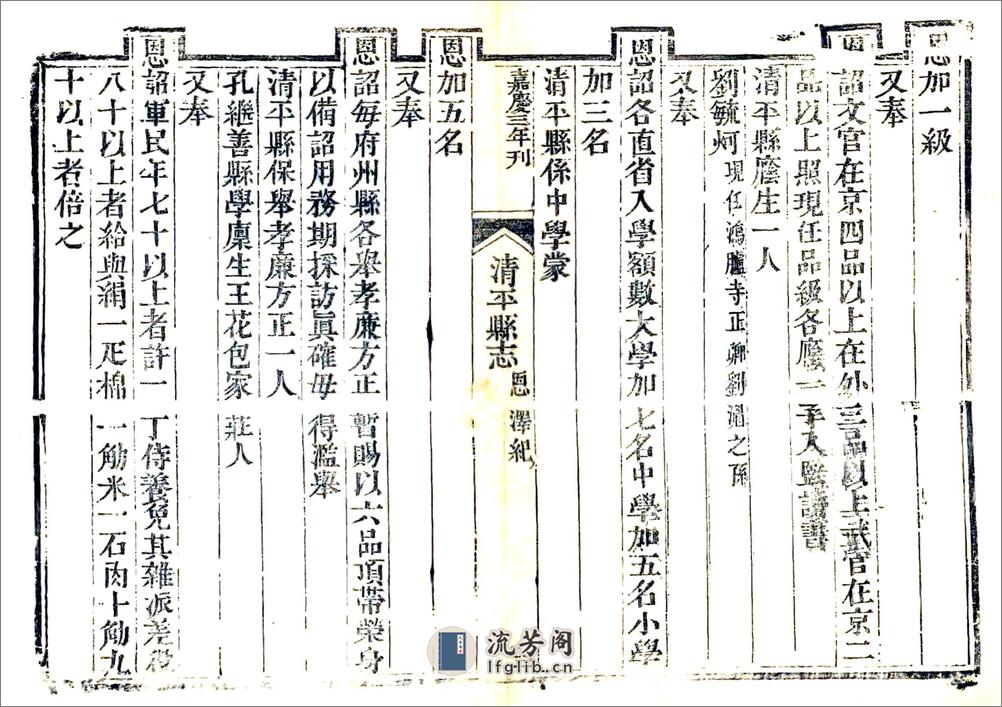 恩加一級
又奉
恩詔文官在京四品以上在外三品以上武官在京二
品以上照現任品級各廕一子入監讀書
清平縣廕生一人
劉毓炣現任鴻臚寺正卿劉湄之孫
又奉
恩詔各直省入學額數大學加七名中學加五名小學
加三名
清平縣係中學蒙
嘉慶三年刊
清平縣志
恩澤紀
恩加五名
又奉
恩詔每府州縣各舉孝廉方正暫賜以六品頂帶榮身
以備詔用務期採訪眞確毋得濫舉
清平縣保舉孝廉方正一人
孔繼善縣學廩生王花包家莊人
又奉
恩詔軍民年七十以上者許一丁侍養免其雜派差役
八十以上者給與絹一疋棉一觔米一石肉十觔九
十以上者倍之
流芳阁
lfglib.cn